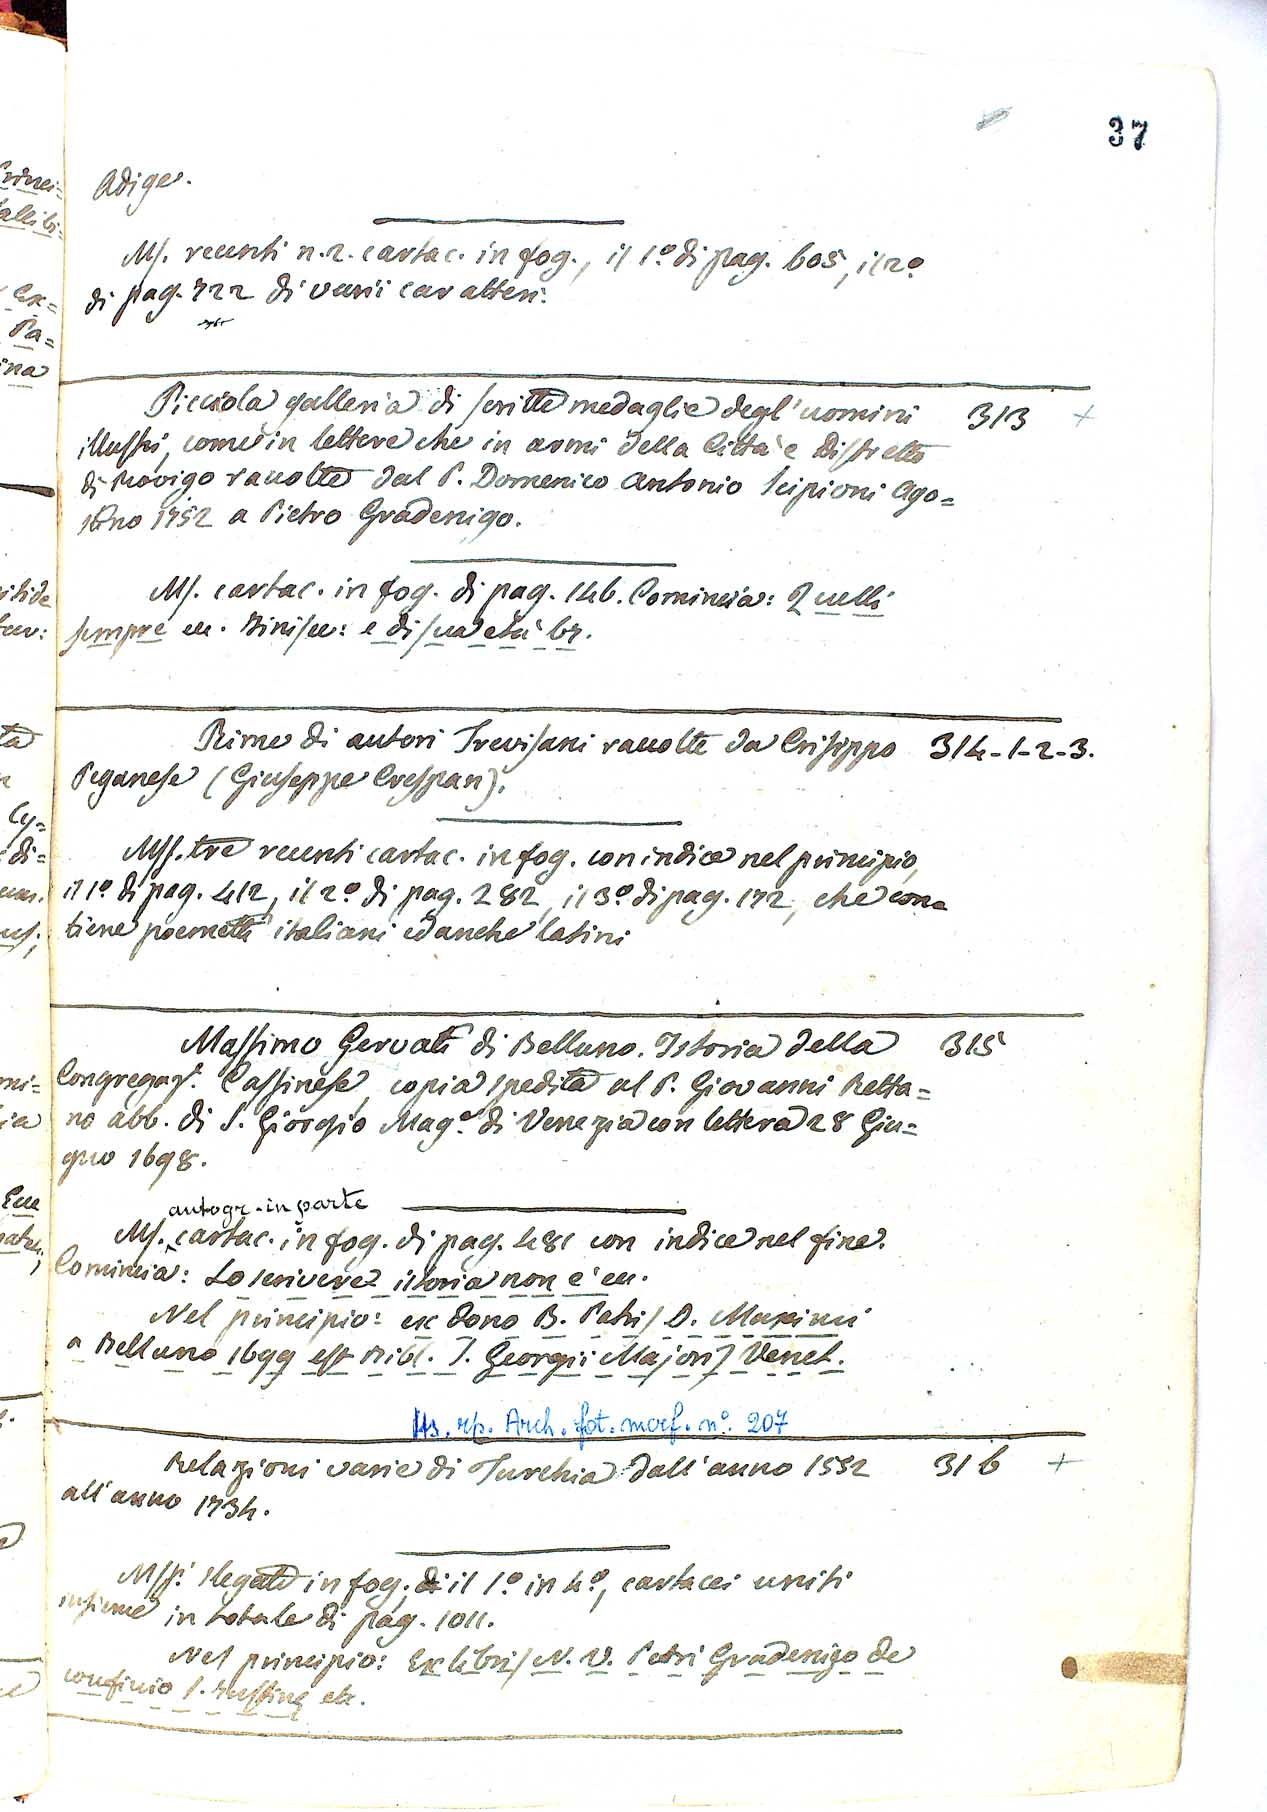 37
Adige.
Ms. recenti n. 2. cartac. in fog., il 1º di pag. 605, il 2º
di pag. 722 di varii caratteri.
Picciola galleria di scritte medaglie degl'uomini 313 +
illustri, come in lettere che in armi della Città e Distretto
di Rovigo raccolte dal P. Domenico Antonio Scipioni Ago=
1752 a Pietro Gradenigo.
Ms. cartac. in fog. di pag. 146. Comincia: Quelli
sempre ec. Finisce: e di sua età 62.
Rime di autori Trevisani raccolte da Crisippo 314-1-2-3.
Peganese (Giuseppe Crespan).
Mss. tre recenti cartac. in fog. con indice nel principio,
il 1º di pag. 412, il 2º di pag. 282, il 3º di pag. 172, che con=
tiene poemetti italiani ed anche latini
Massimo Gervati di Belluno. Istoria della 315
Congregaz. Cassinese, copia spedita al P. Giovanni Retta=
no abb. di S. Giorgio Magº. di Venezia con lettera 28 Giu=
gno 1698.
autogr. in parte
Ms. cartac. in fog. di pag. 481 con indice nel fine.
Comincia: Lo scrivere istoria non è ec.
Nel principio: ex dono R. Patris D. Maximi
a Belluno 1699 est Bibl. S. Georgii Majoris Venet.
Ms. rp. Arch. fot. marc. nº. 207
Relazioni varie di Turchia dall'anno 1552 316 +
all'anno 1734.
Mss. slegati in fog. di il 1º in 4º, cartacei uniti
insieme in totale di pag. 1011.
Nel principio: Ex libris N. V. Petri Gradenigo de
confinio S. Justinę etc.